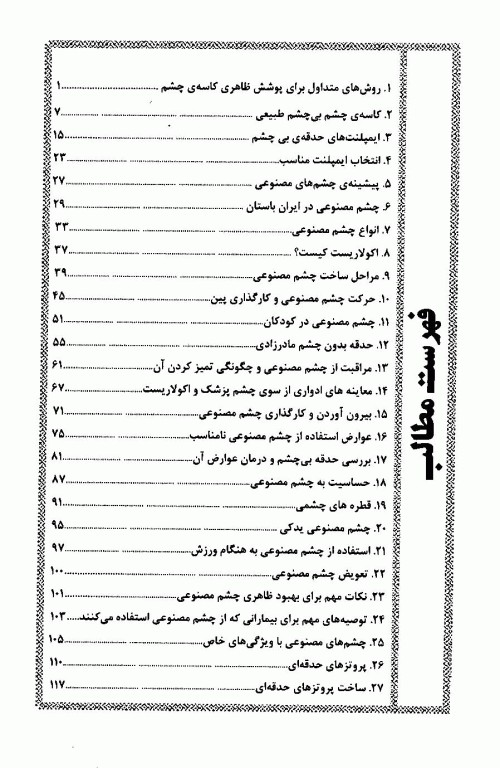 فهرست مطالب
۱. روش‌های متداول برای پوشش ظاهری کاسه‌ی چشم ........ ۱
۲. کاسه‌ی چشم بی‌چشم طبیعی ........ ۷
۳. ایمپلنت‌های حدقه‌ی بی چشم ........ ۱۵
۴. انتخاب ایمپلنت مناسب ........ ۲۳
۵. پیشینه‌ی چشم‌های مصنوعی ........ ۲۷
۶. چشم مصنوعی در ایران باستان ........ ۲۹
۷. انواع چشم مصنوعی ........ ۳۳
۸. اکولاریست کیست؟ ........ ۳۷
۹. مراحل ساخت چشم مصنوعی ........ ۳۹
۱۰. حرکت چشم مصنوعی و کارگذاری پین ........ ۴۵
۱۱. چشم مصنوعی در کودکان ........ ۵۱
۱۲. حدقه بدون چشم مادرزادی ........ ۵۵
۱۳. مراقبت از چشم مصنوعی و چگونگی تمیز کردن آن ........ ۶۱
۱۴. معاینه های ادواری از سوی چشم پزشک و اکولاریست ........ ۶۷
۱۵. بیرون آوردن و کارگذاری چشم مصنوعی ........ ۷۱
۱۶. عوارض استفاده از چشم مصنوعی نامناسب ........ ۷۵
۱۷. بررسی حدقه بی‌چشم و درمان عوارض آن ........ ۸۱
۱۸. حساسیت به چشم مصنوعی ........ ۸۷
۱۹. قطره های چشمی ........ ۹۱
۲۰. چشم مصنوعی یدکی ........ ۹۵
۲۱. استفاده از چشم مصنوعی به هنگام ورزش ........ ۹۷
۲۲. تعویض چشم مصنوعی ........ ۱۰۰
۲۳. نکات مهم برای بهبود ظاهری چشم مصنوعی ........ ۱۰۱
۲۴. توصیه‌های مهم برای بیمارانی که از چشم مصنوعی استفاده می‌کنند ........ ۱۰۳
۲۵. چشم‌های مصنوعی با ویژگی‌های خاص ........ ۱۰۵
۲۶. پروتزهای حدقه‌ای ........ ۱۱۰
۲۷. ساخت پروتزهای حدقه‌ای ........ ۱۱۷